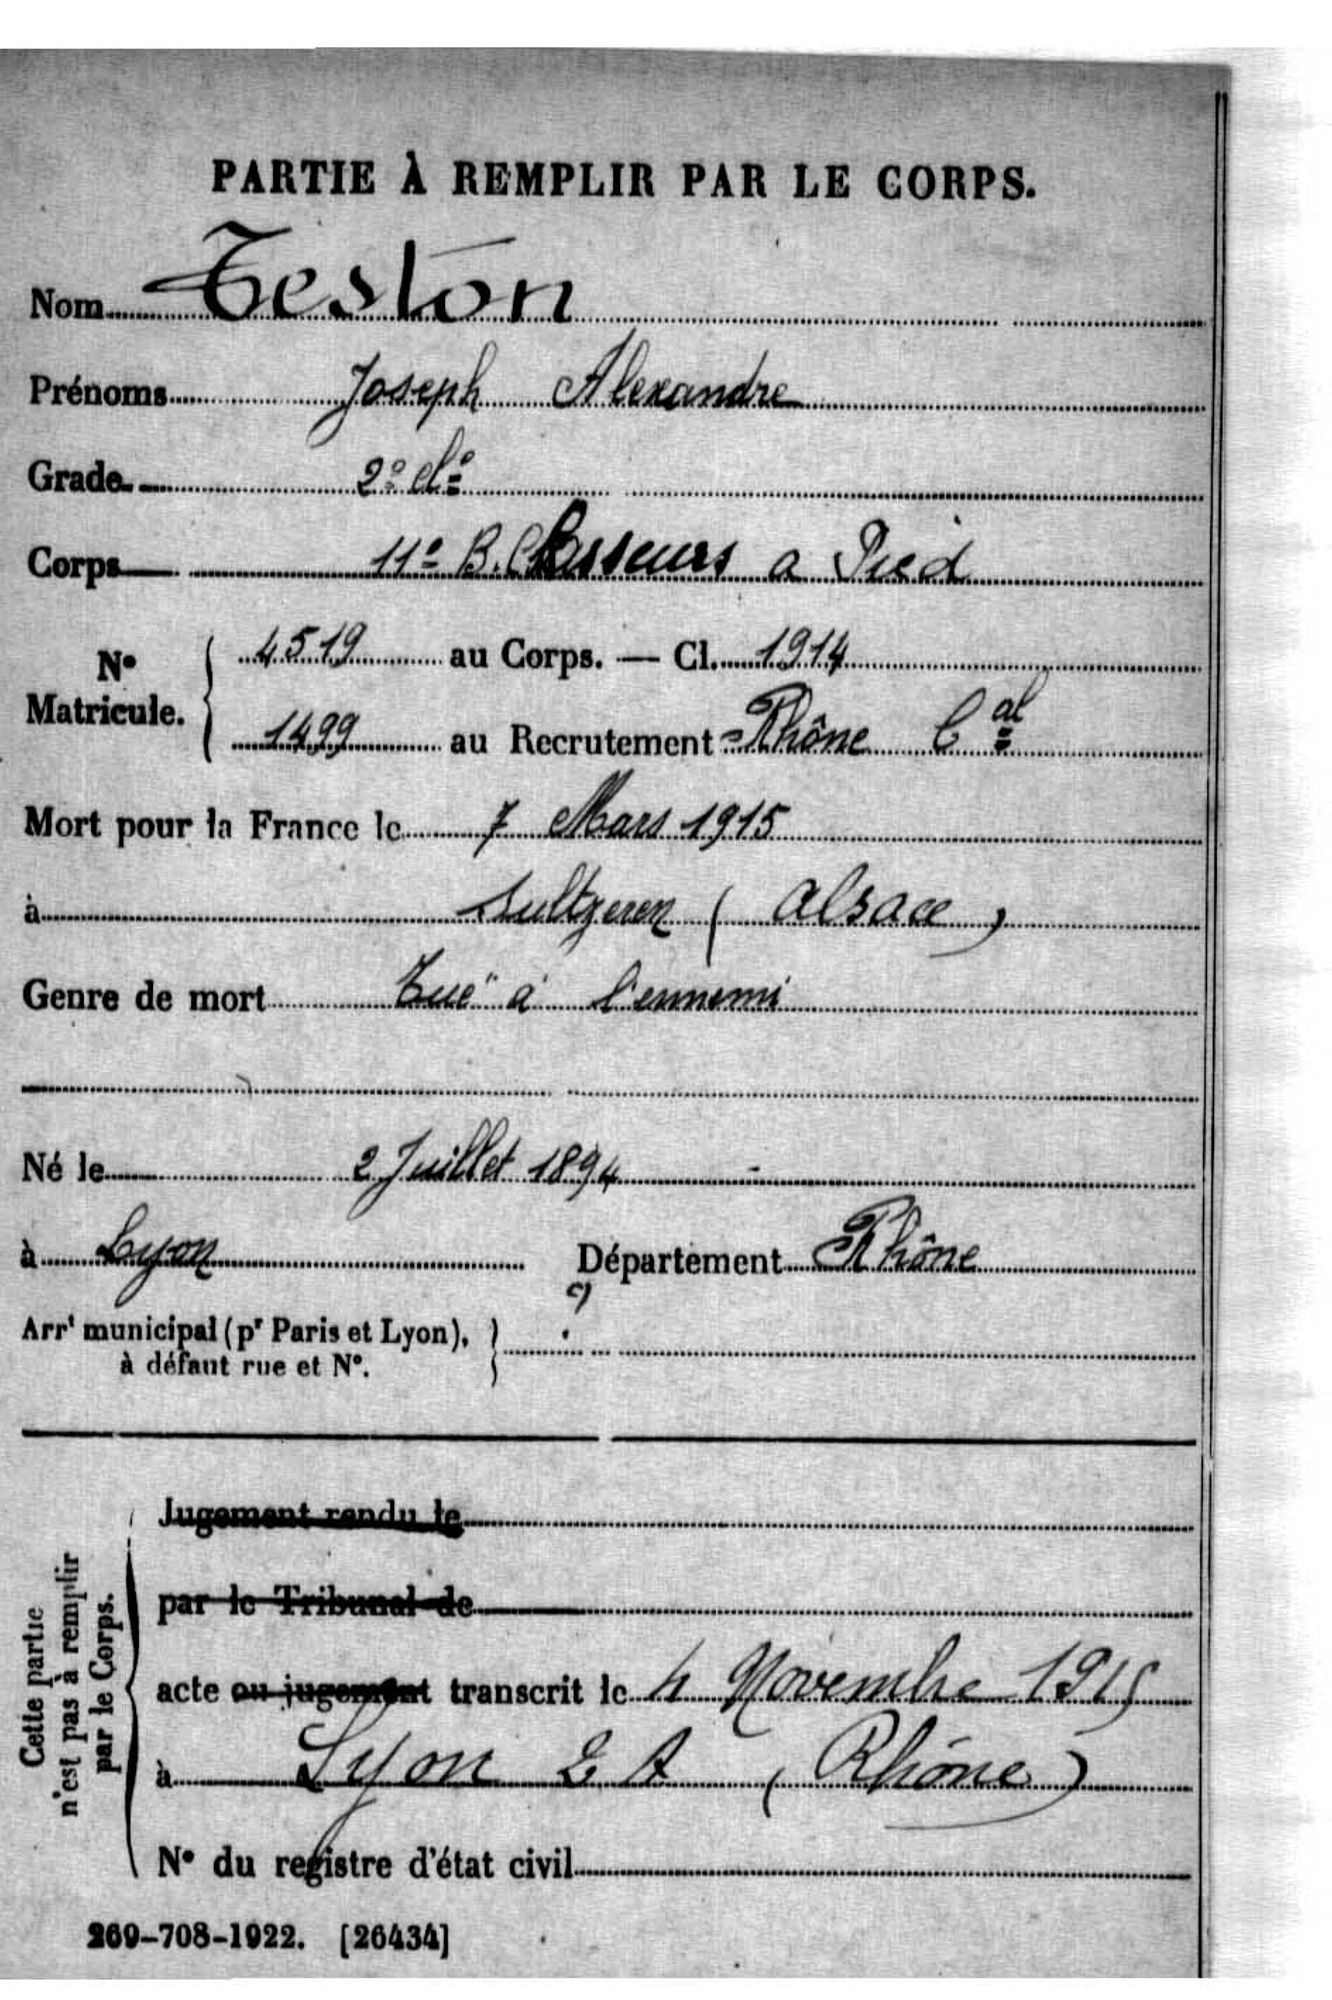 PARTIE À REMPLIR PAR LE CORPS.
Nom Teston
Prénoms Joseph Alexandre
Grade 2e cle
Corps 11e B. Chasseurs a Pied
N° Matricule. 4519 au Corps. — Cl. 1914
1499 au Recrutement Rhône Cal
Mort pour la France le 7 Mars 1915
à Sultzeren ( Alsace )
Genre de mort Tué à l'ennemi
Né le 2 Juillet 1894
à Lyon Département Rhône
Arrt municipal (pr Paris et Lyon),
à défaut rue et N°.
Cette partie
n'est pas à remplir
par le Corps.
Jugement rendu le
par le Tribunal de
acte ou jugement transcrit le 4 Novembre 1915
à Lyon 2 A (Rhône)
N° du registre d'état civil
269-708-1922. [26434]